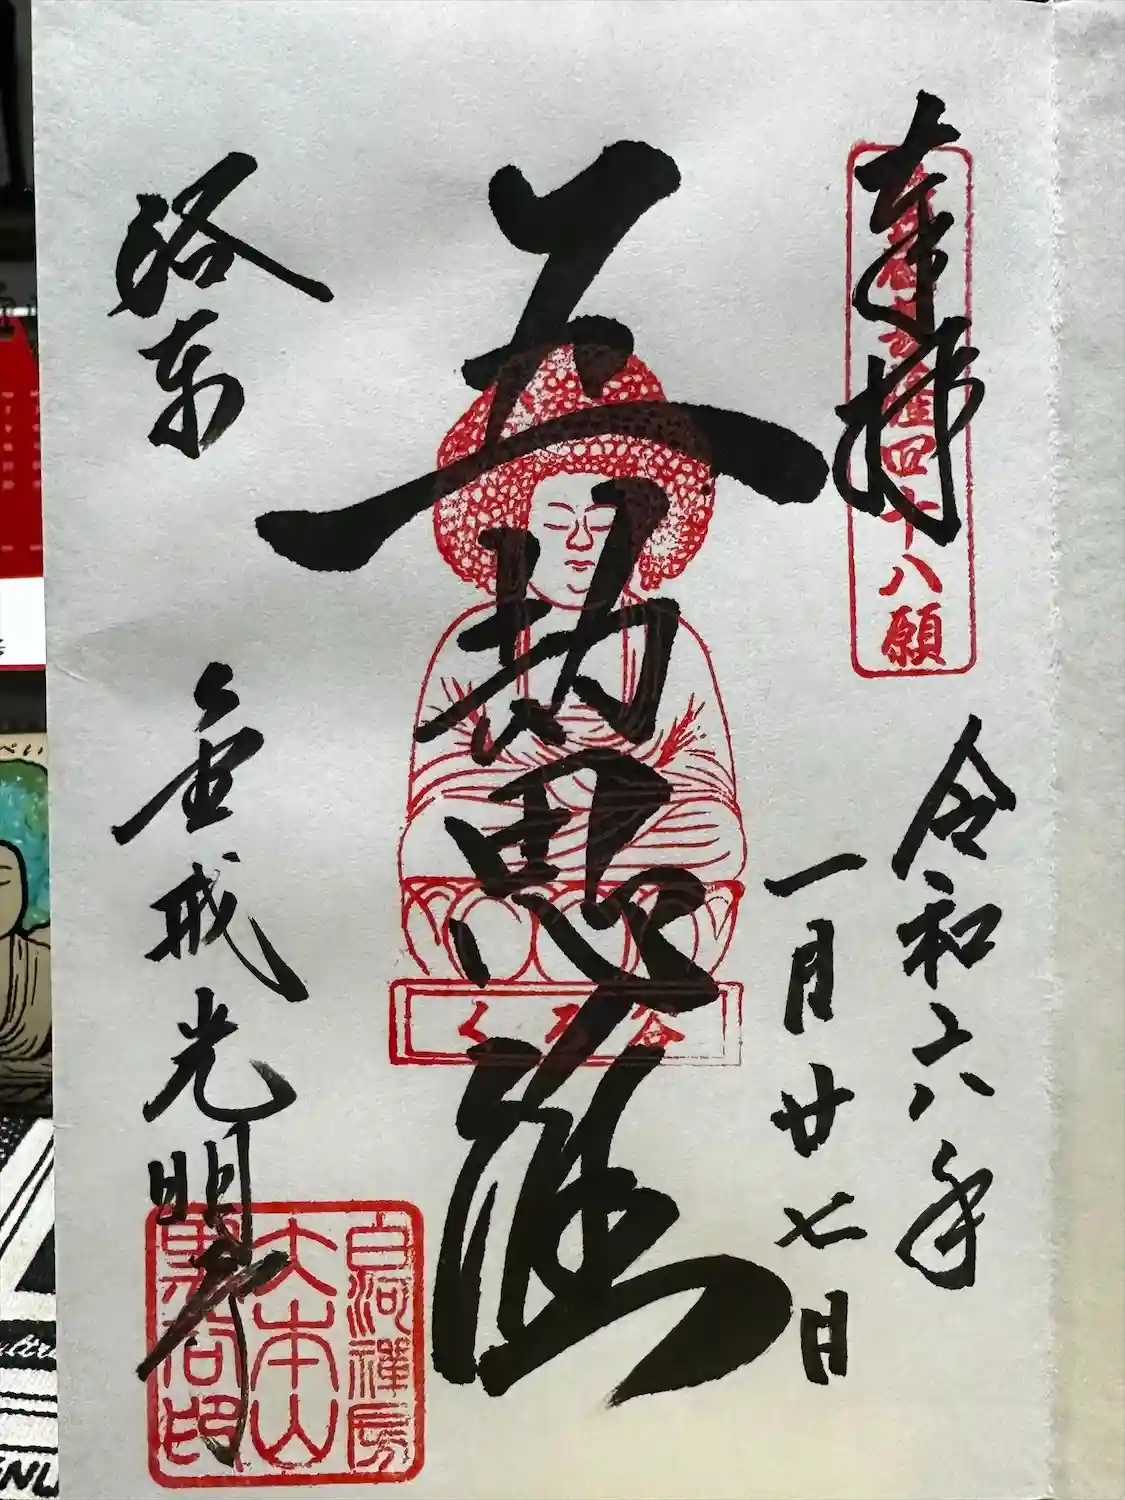 奉拝
四十八願
令和六年
一月廿七日
五劫思惟
くろ谷
洛東
金戒光明寺
白河禅房
大本山
黒谷印